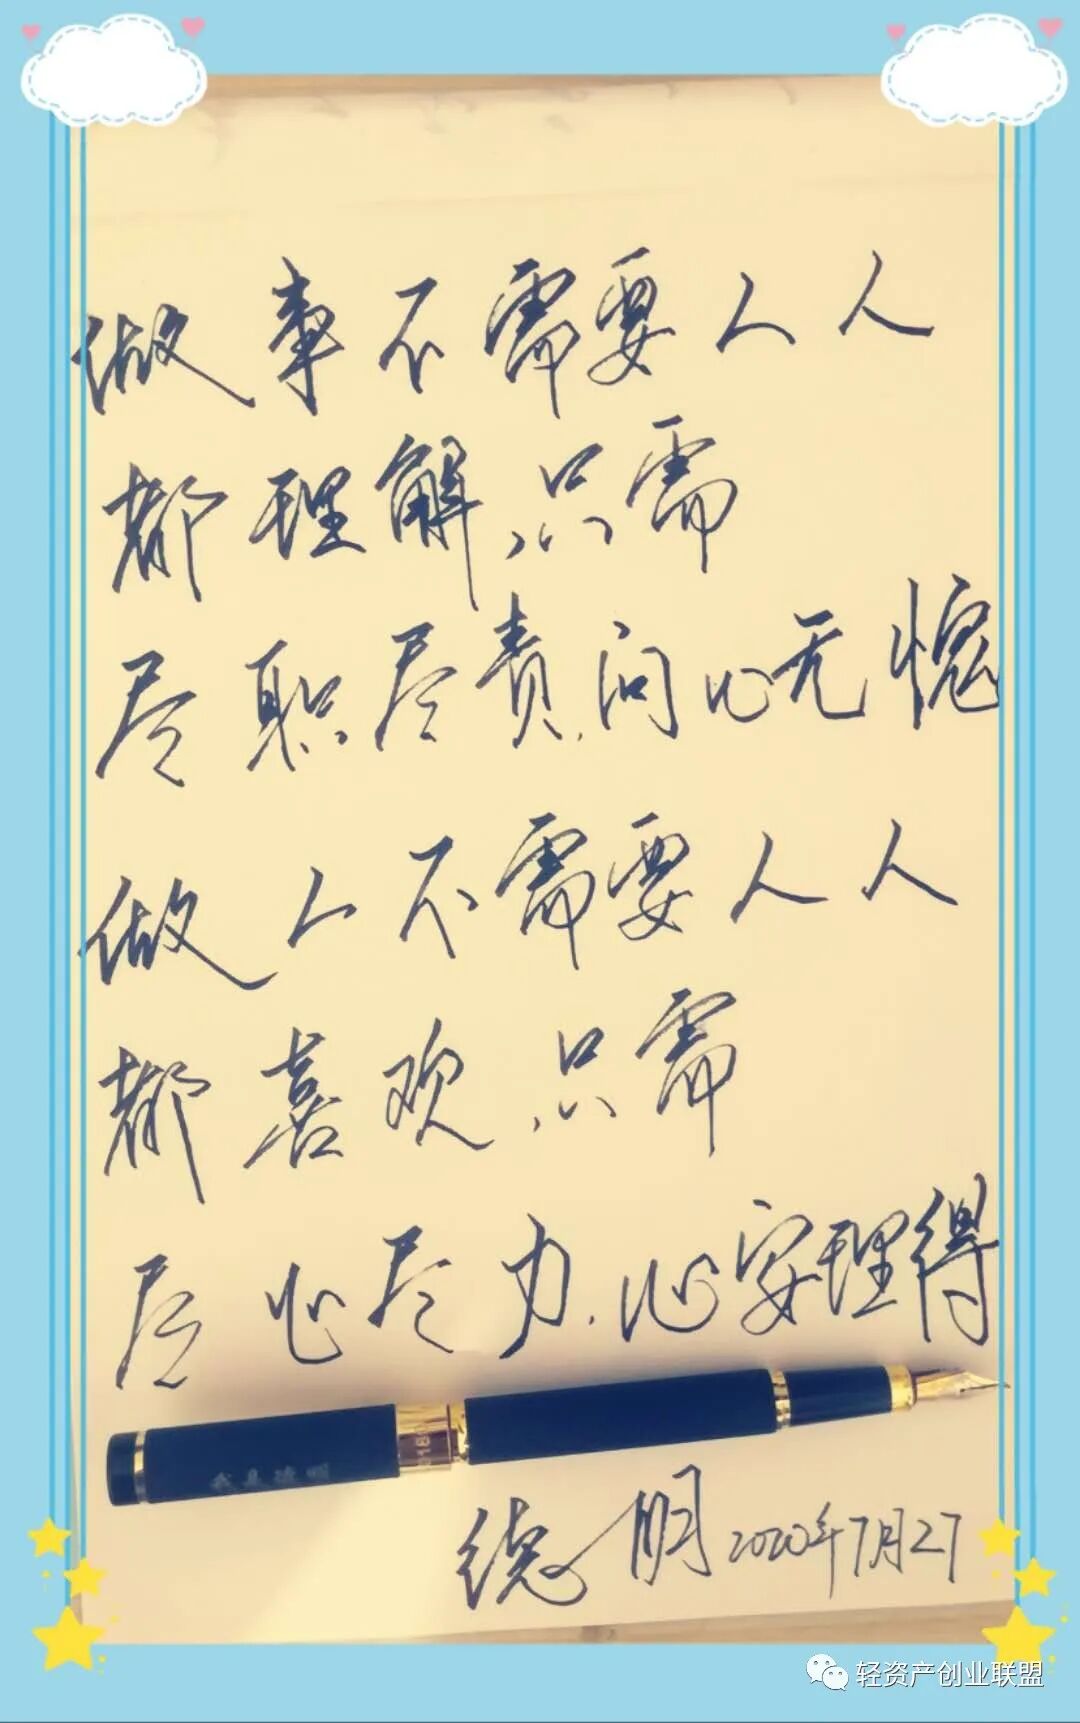 做事不需要人人
都理解,只需
尽职尽责.问心无愧
做人不需要人人
都喜欢.只需
尽心尽力.心安理得
德明2020年7月27
轻资产创业联盟